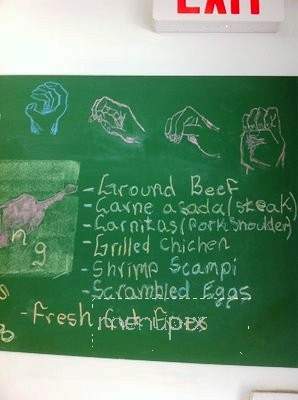 EXIT
n g
- Ground Beef
- Carne asada (steak)
- Carnitas (Pork Shoulder)
- Grilled Chicken
- Shrimp Scampi
- Scrambled Eggs
- Fresh